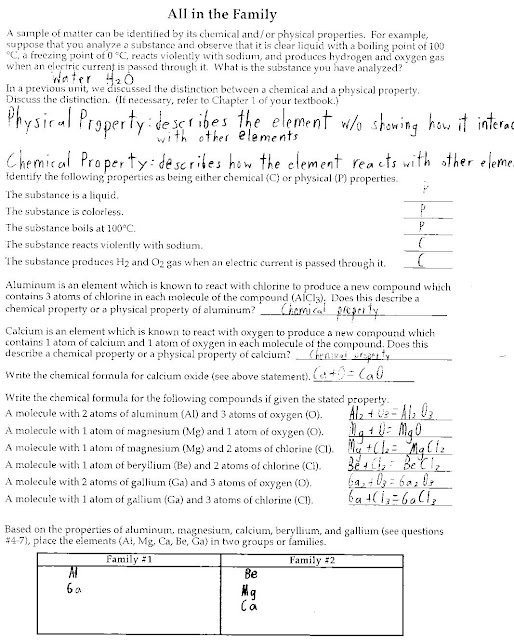 All in the Family
A sample of matter can be identified by its chemical and/or physical properties. For example,
suppose that you analyze a substance and observe that it is clear liquid with a boiling point of 100
°C, a freezing point of 0 °C, reacts violently with sodium, and produces hydrogen and oxygen gas
when an electric current is passed through it. What is the substance you have analyzed?
Water H2O
In a previous unit, we discussed the distinction between a chemical and a physical property.
Discuss the distinction. (If necessary, refer to Chapter 1 of your textbook.)
Physical Property: describes the element w/o showing how it interac
with other elements
Chemical Property: describes how the element reacts with other eleme
Identify the following properties as being either chemical (C) or physical (P) properties.
The substance is a liquid. P
The substance is colorless. P
The substance boils at 100°C. P
The substance reacts violently with sodium. C
The substance produces H2 and O2 gas when an electric current is passed through it. C
Aluminum is an element which is known to react with chlorine to produce a new compound which
contains 3 atoms of chlorine in each molecule of the compound (AlCl3). Does this describe a
chemical property or a physical property of aluminum? Chemical property
Calcium is an element which is known to react with oxygen to produce a new compound which
contains 1 atom of calcium and 1 atom of oxygen in each molecule of the compound. Does this
describe a chemical property or a physical property of calcium? Chemical property
Write the chemical formula for calcium oxide (see above statement). Ca+O= CaO
Write the chemical formula for the following compounds if given the stated property.
A molecule with 2 atoms of aluminum (Al) and 3 atoms of oxygen (O). Al2 + O3 = Al2 O3
A molecule with 1 atom of magnesium (Mg) and 1 atom of oxygen (O). Mg + O= MgO
A molecule with 1 atom of magnesium (Mg) and 2 atoms of chlorine (Cl). Mg +Cl2= MgCl2
A molecule with 1 atom of beryllium (Be) and 2 atoms of chlorine (Cl). Be+Cl2= BeCl2
A molecule with 2 atoms of gallium (Ga) and 3 atoms of oxygen (O). Ga2+O3= Ga2O3
A molecule with 1 atom of gallium (Ga) and 3 atoms of chlorine (Cl). Ga +Cl3=GaCl3
Based on the properties of aluminum, magnesium, calcium, beryllium, and gallium (see questions
#4-7), place the elements (Al, Mg, Ca, Be, Ga) in two groups or families.
Family #1 Family #2
Al Be
Ga Mg
Ca